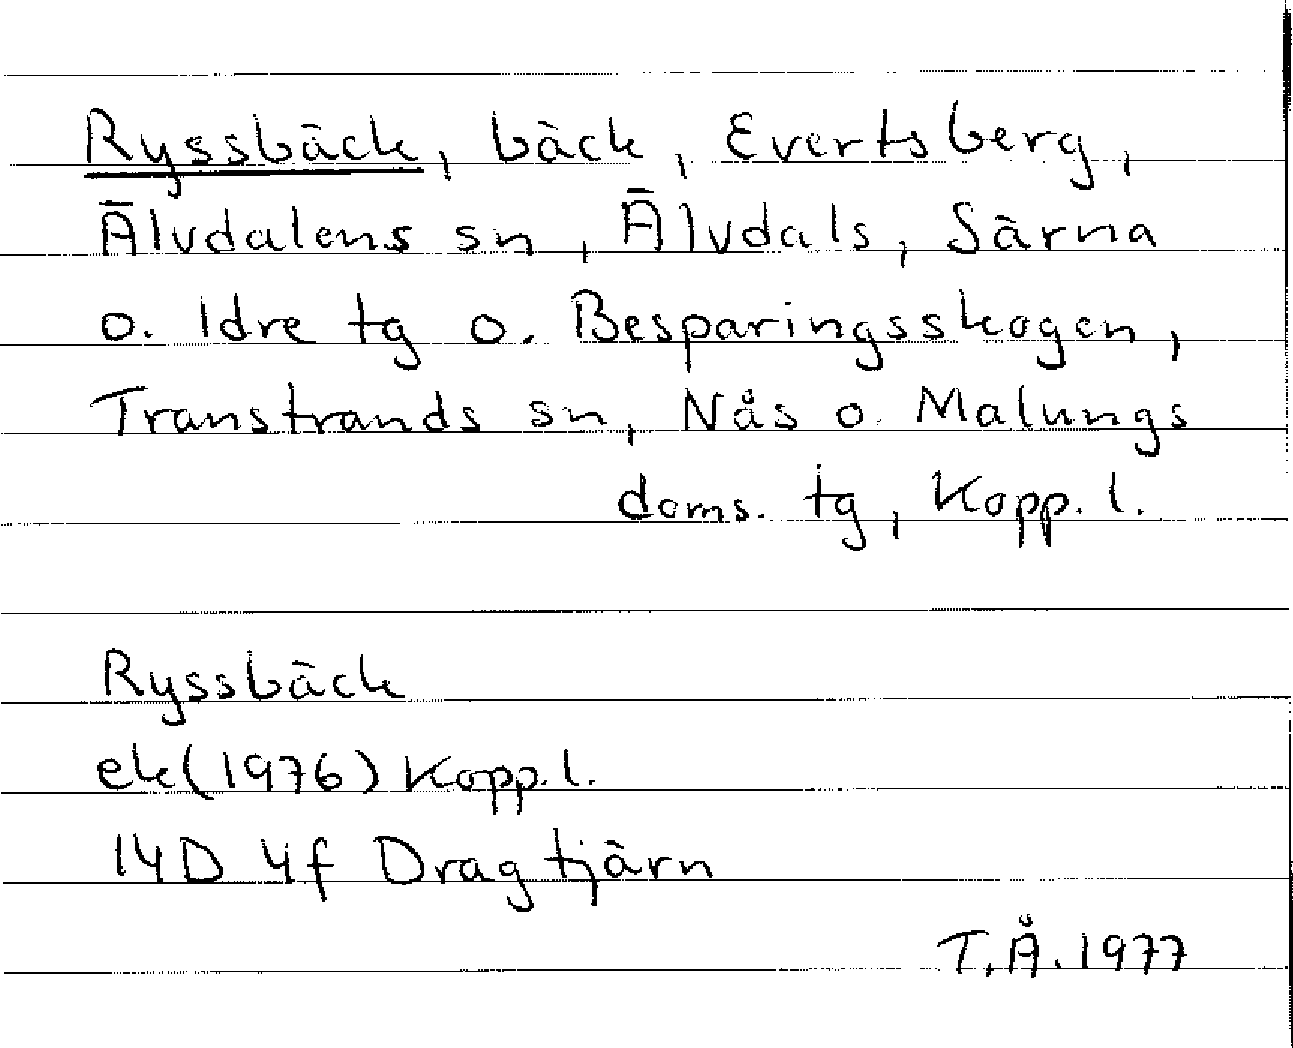 Ryssbäck, bäck, Evertsberg,
Älvdalens sn, Älvdals, Särna
o. Idre tg o. Besparingsskogen,
Transtrands sn, Nås o. Malungs
doms. tg, Kopp. l.
Ryssbäck
ek (1976) Kopp. l.
14D 4f Dragtjärn
T.Å. 1977